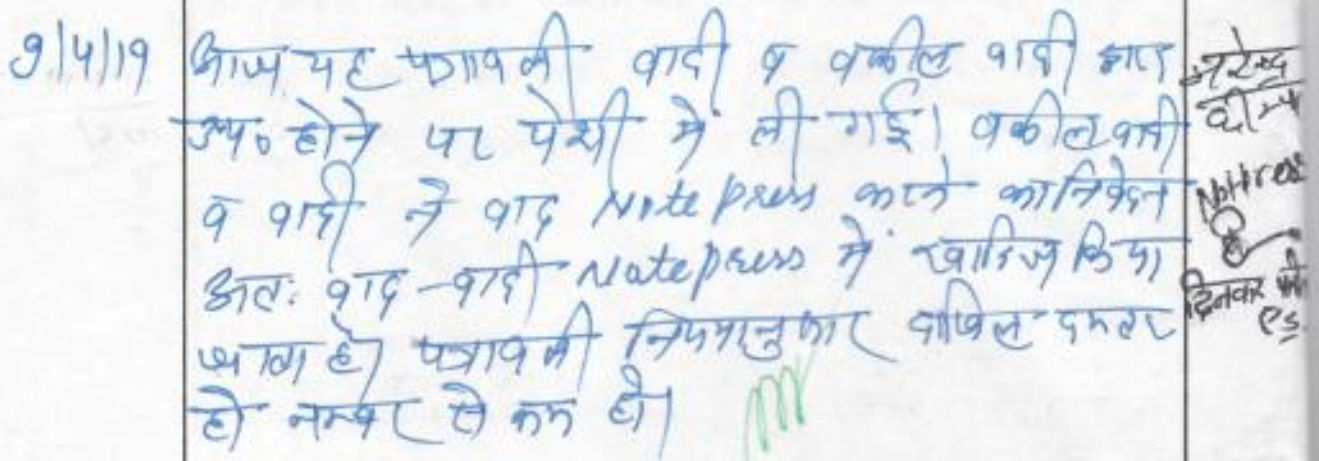 9/4/19
आज यह पत्रावली वादी व वकील वादी द्वारा
उप० होने पर पेशी में ली गई। वकील वादी
व वादी ने वाद Notepress करने का निवेदन
अतः वाद-वादी Notepress में खारिज किया
जाता है। पत्रावली नियमानुसार दाखिल दफ्तर
हो नम्बर से कम हो।
नरेन्द्र
Notpress
दिनकर